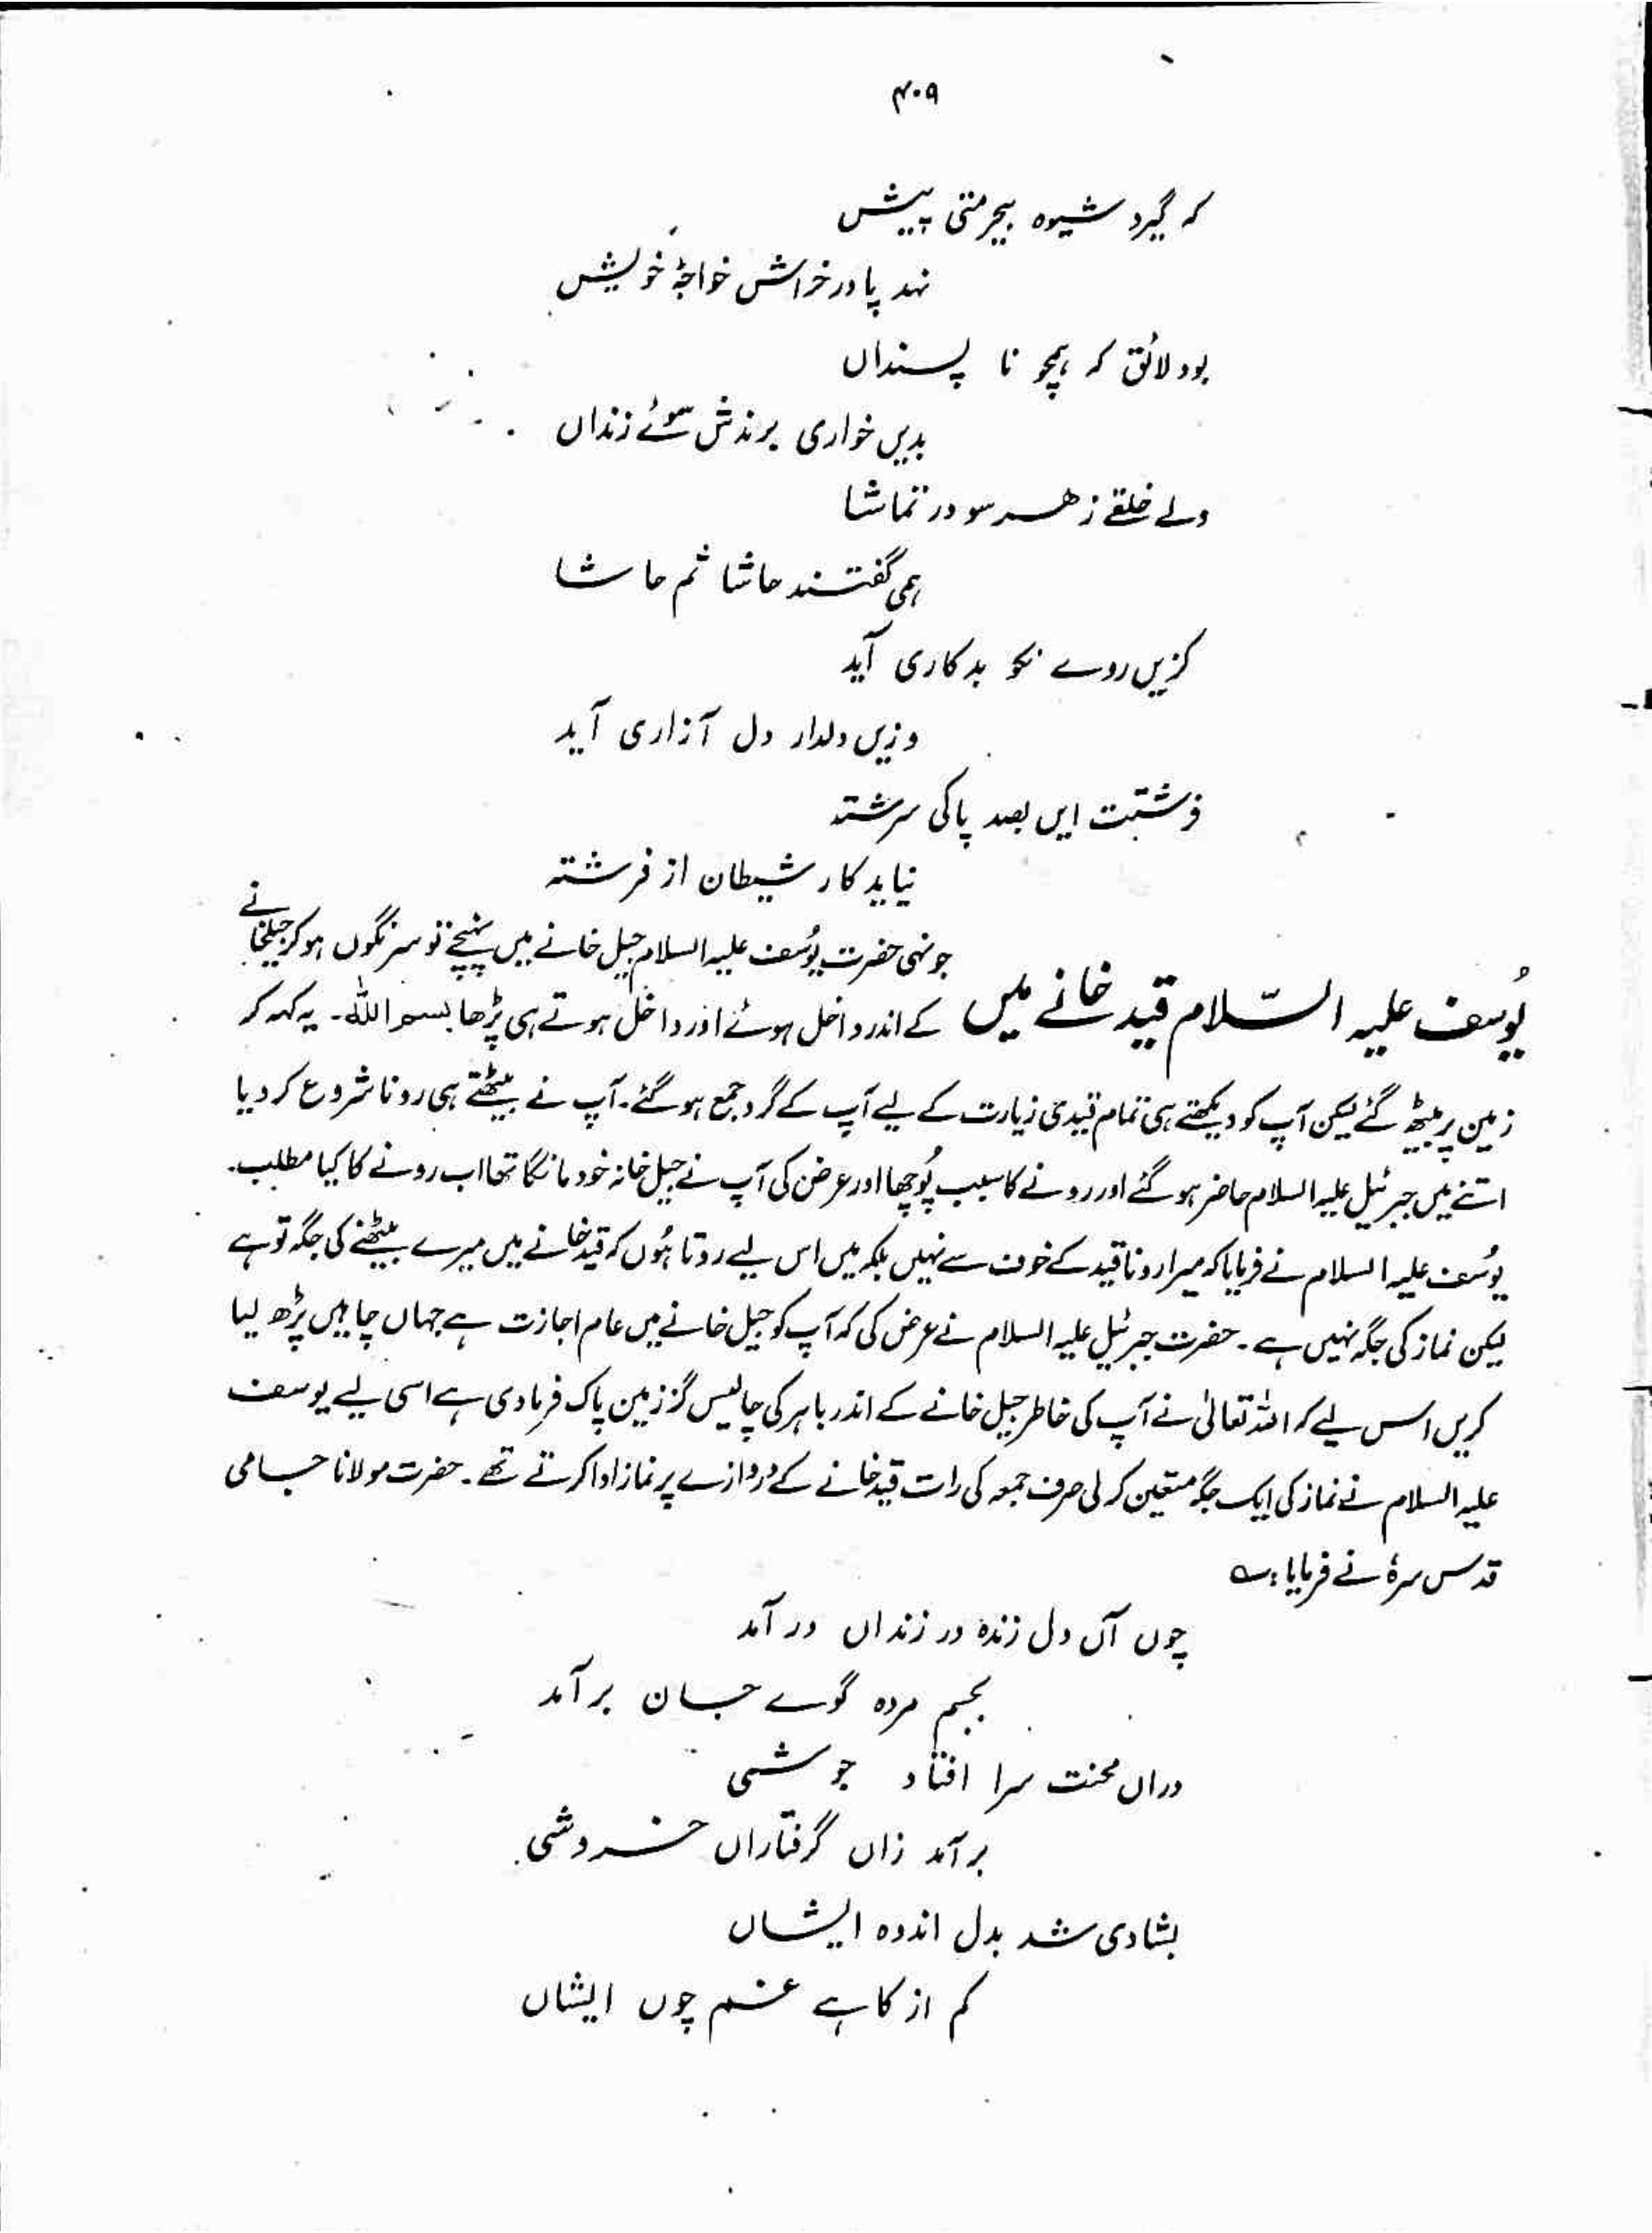 ۴۰۹
کہ گیرد شیوہ بیحرمتی پیش
نہد پا در خراش خواجۂ خویش
بود لائق کہ ہمچو نا پسنداں
بدیں خواری برندش سوئے زنداں
ولے خلقے ز ھر سو در تماشا
ہمی گفتند حاشا ثم حاشا
کزیں روے نکو بدکاری آید
وزیں دلدار دل آزاری آید
فرشتہت ایں بصد پاکی سرشتہ
نیاید کار شیطان از فرشتہ
جونہی حضرت یُوسف علیہ السلام جیل خانے میں پہنچے تو سرنگوں ہوکر جیلخانے
یُوسف علیہ السّلام قید خانے میں کے اندر داخل ہوئے اور داخل ہوتے ہی پڑھا بسم اللہ۔ یہ کہہ کر
زمین پر بیٹھ گئے لیکن آپ کو دیکھتے ہی تمام قیدی زیارت کے لیے آپ کے گرد جمع ہوگئے۔ آپ نے بیٹھتے ہی رونا شروع کردیا
اتنے میں جبرئیل علیہ السلام حاضر ہوگئے اور رونے کا سبب پُوچھا اور عرض کی آپ نے جیل خانہ خود مانگا تھا اب رونے کا کیا مطلب۔
یوسُف علیہ السلام نے فرمایا کہ میرا رونا قید کے خوف سے نہیں بلکہ میں اس لیے روتا ہُوں کہ قیدخانے میں میرے بیٹھنے کی جگہ تو ہے
لیکن نماز کی جگہ نہیں ہے۔ حضرت جبرئیل علیہ السلام نے عرض کی کہ آپ کو جیل خانے میں عام اجازت ہے جہاں چاہیں پڑھ لیا
کریں اس لیے کہ اللہ تعالیٰ نے آپ کی خاطر جیل خانے کے اندر باہر کی چالیس گز زمین پاک فرمادی ہے اسی لیے یوسف
علیہ السلام نے نماز کی ایک جگہ متعین کرلی صرف جمعہ کی رات قیدخانے کے دروازے پر نماز ادا کرتے تھے۔ حضرت مولانا جامی
قدس سرہٗ نے فرمایا: ؎
چوں آں دل زندہ در زنداں در آمد
بجسم مردہ گوے جان بر آمد
دراں محنت سرا افتاد جوشی
بر آمد زاں گرفتاراں خروشی
بشادی شد بدل اندوہ ایشاں
کم از کاہے غم چوں ایشاں